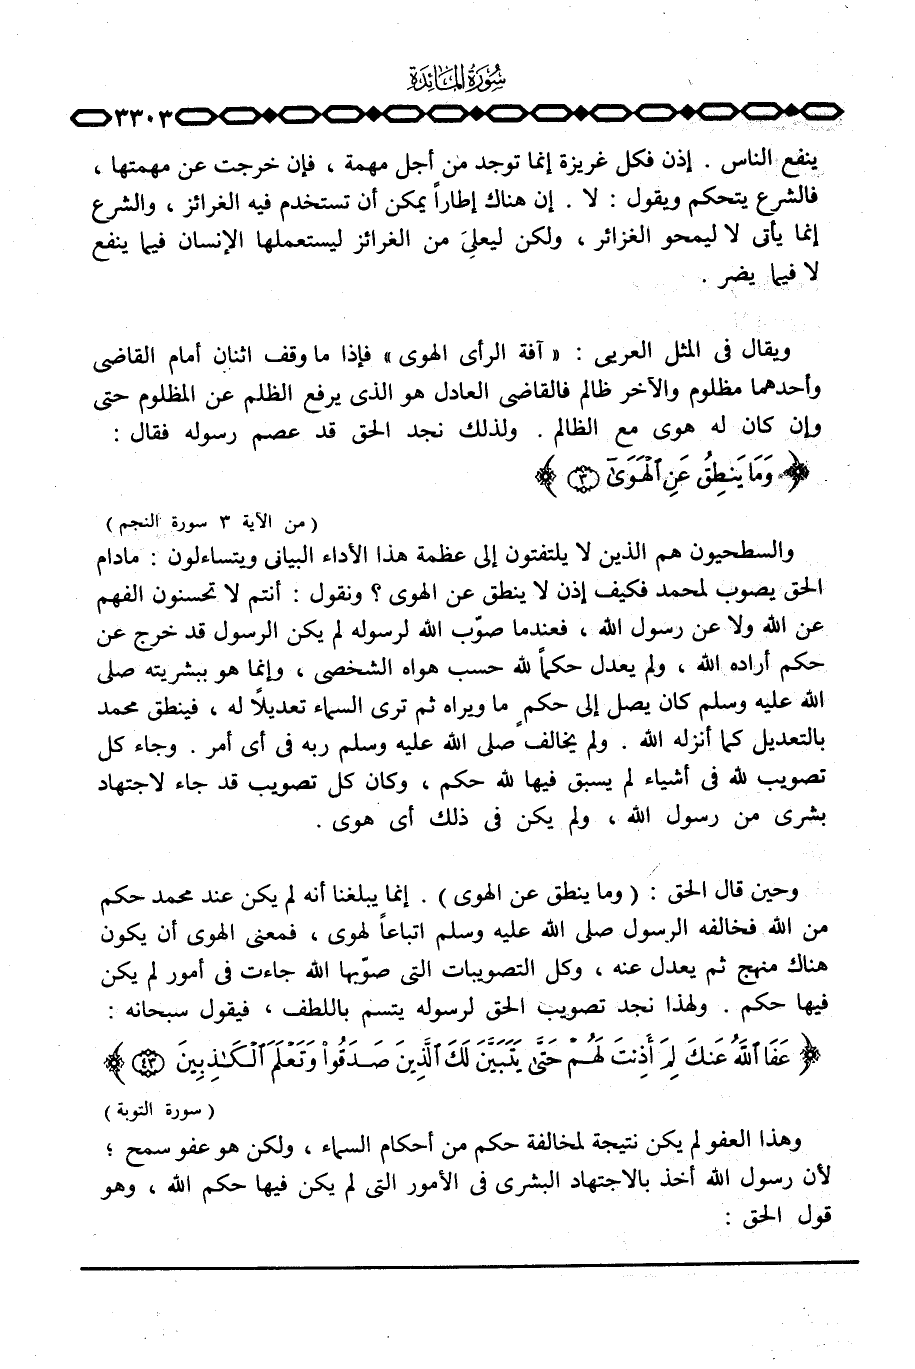 سُورَةُ المَائِدَةِ
٣٣٠٣
ينفع الناس . إذن فكل غريزة إنما توجد من أجل مهمة ، فإن خرجت عن مهمتها ،
فالشرع يتحكم ويقول : لا . إن هناك إطاراً يمكن أن تستخدم فيه الغرائز ، والشرع
إنما يأتى لا ليمحو الغزائر ، ولكن ليعلىَ من الغرائز ليستعملها الإنسان فيما ينفع
لا فيما يضر .
ويقال فى المثل العربى : « آفة الرأى الهوى » فإذا ما وقف اثنان أمام القاضى
وأحدهما مظلوم والآخر ظالم فالقاضى العادل هو الذى يرفع الظلم عن المظلوم حتى
وإن كان له هوى مع الظالم . ولذلك نجد الحق قد عصم رسوله فقال :
﴿ وَمَا يَنطِقُ عَنِ ٱلْهَوَىٰٓ ﴿٣﴾ ﴾
( من الآية ٣ سورة النجم )
والسطحيون هم الذين لا يلتفتون إلى عظمة هذا الأداء البيانى ويتساءلون : مادام
الحق يصوب لمحمد فكيف إذن لا ينطق عن الهوى ؟ ونقول : أنتم لا تحسنون الفهم
عن الله ولا عن رسول الله ، فعندما صوّب الله لرسوله لم يكن الرسول قد خرج عن
حكم أراده الله ، ولم يعدل حكماً لله حسب هواه الشخصى ، وإنما هو ببشريته صلى
الله عليه وسلم كان يصل إلى حكمٍ ما ويراه ثم ترى السماء تعديلاً له ، فينطق محمد
بالتعديل كما أنزله الله . ولم يخالف صلى الله عليه وسلم ربه فى أى أمر . وجاء كل
تصويب لله فى أشياء لم يسبق فيها لله حكم ، وكان كل تصويب قد جاء لاجتهاد
بشرى من رسول الله ، ولم يكن فى ذلك أى هوى .
وحين قال الحق : ( وما ينطق عن الهوى ) . إنما يبلغنا أنه لم يكن عند محمد حكم
من الله فخالفه الرسول صلى الله عليه وسلم اتباعاً لهوى ، فمعنى الهوى أن يكون
هناك منهج ثم يعدل عنه ، وكل التصويبات التى صوّبها الله جاءت فى أمور لم يكن
فيها حكم . ولهذا نجد تصويب الحق لرسوله يتسم باللطف ، فيقول سبحانه :
﴿ عَفَا ٱللَّهُ عَنكَ لِمَ أَذِنتَ لَهُمْ حَتَّىٰ يَتَبَيَّنَ لَكَ ٱلَّذِينَ صَدَقُوا۟ وَتَعْلَمَ ٱلْكَـٰذِبِينَ ﴿٤٣﴾ ﴾
( سورة التوبة )
وهذا العفو لم يكن نتيجة لمخالفة حكم من أحكام السماء ، ولكن هو عفو سمح ؛
لأن رسول الله أخذ بالاجتهاد البشرى فى الأمور التى لم يكن فيها حكم الله ، وهو
قول الحق :